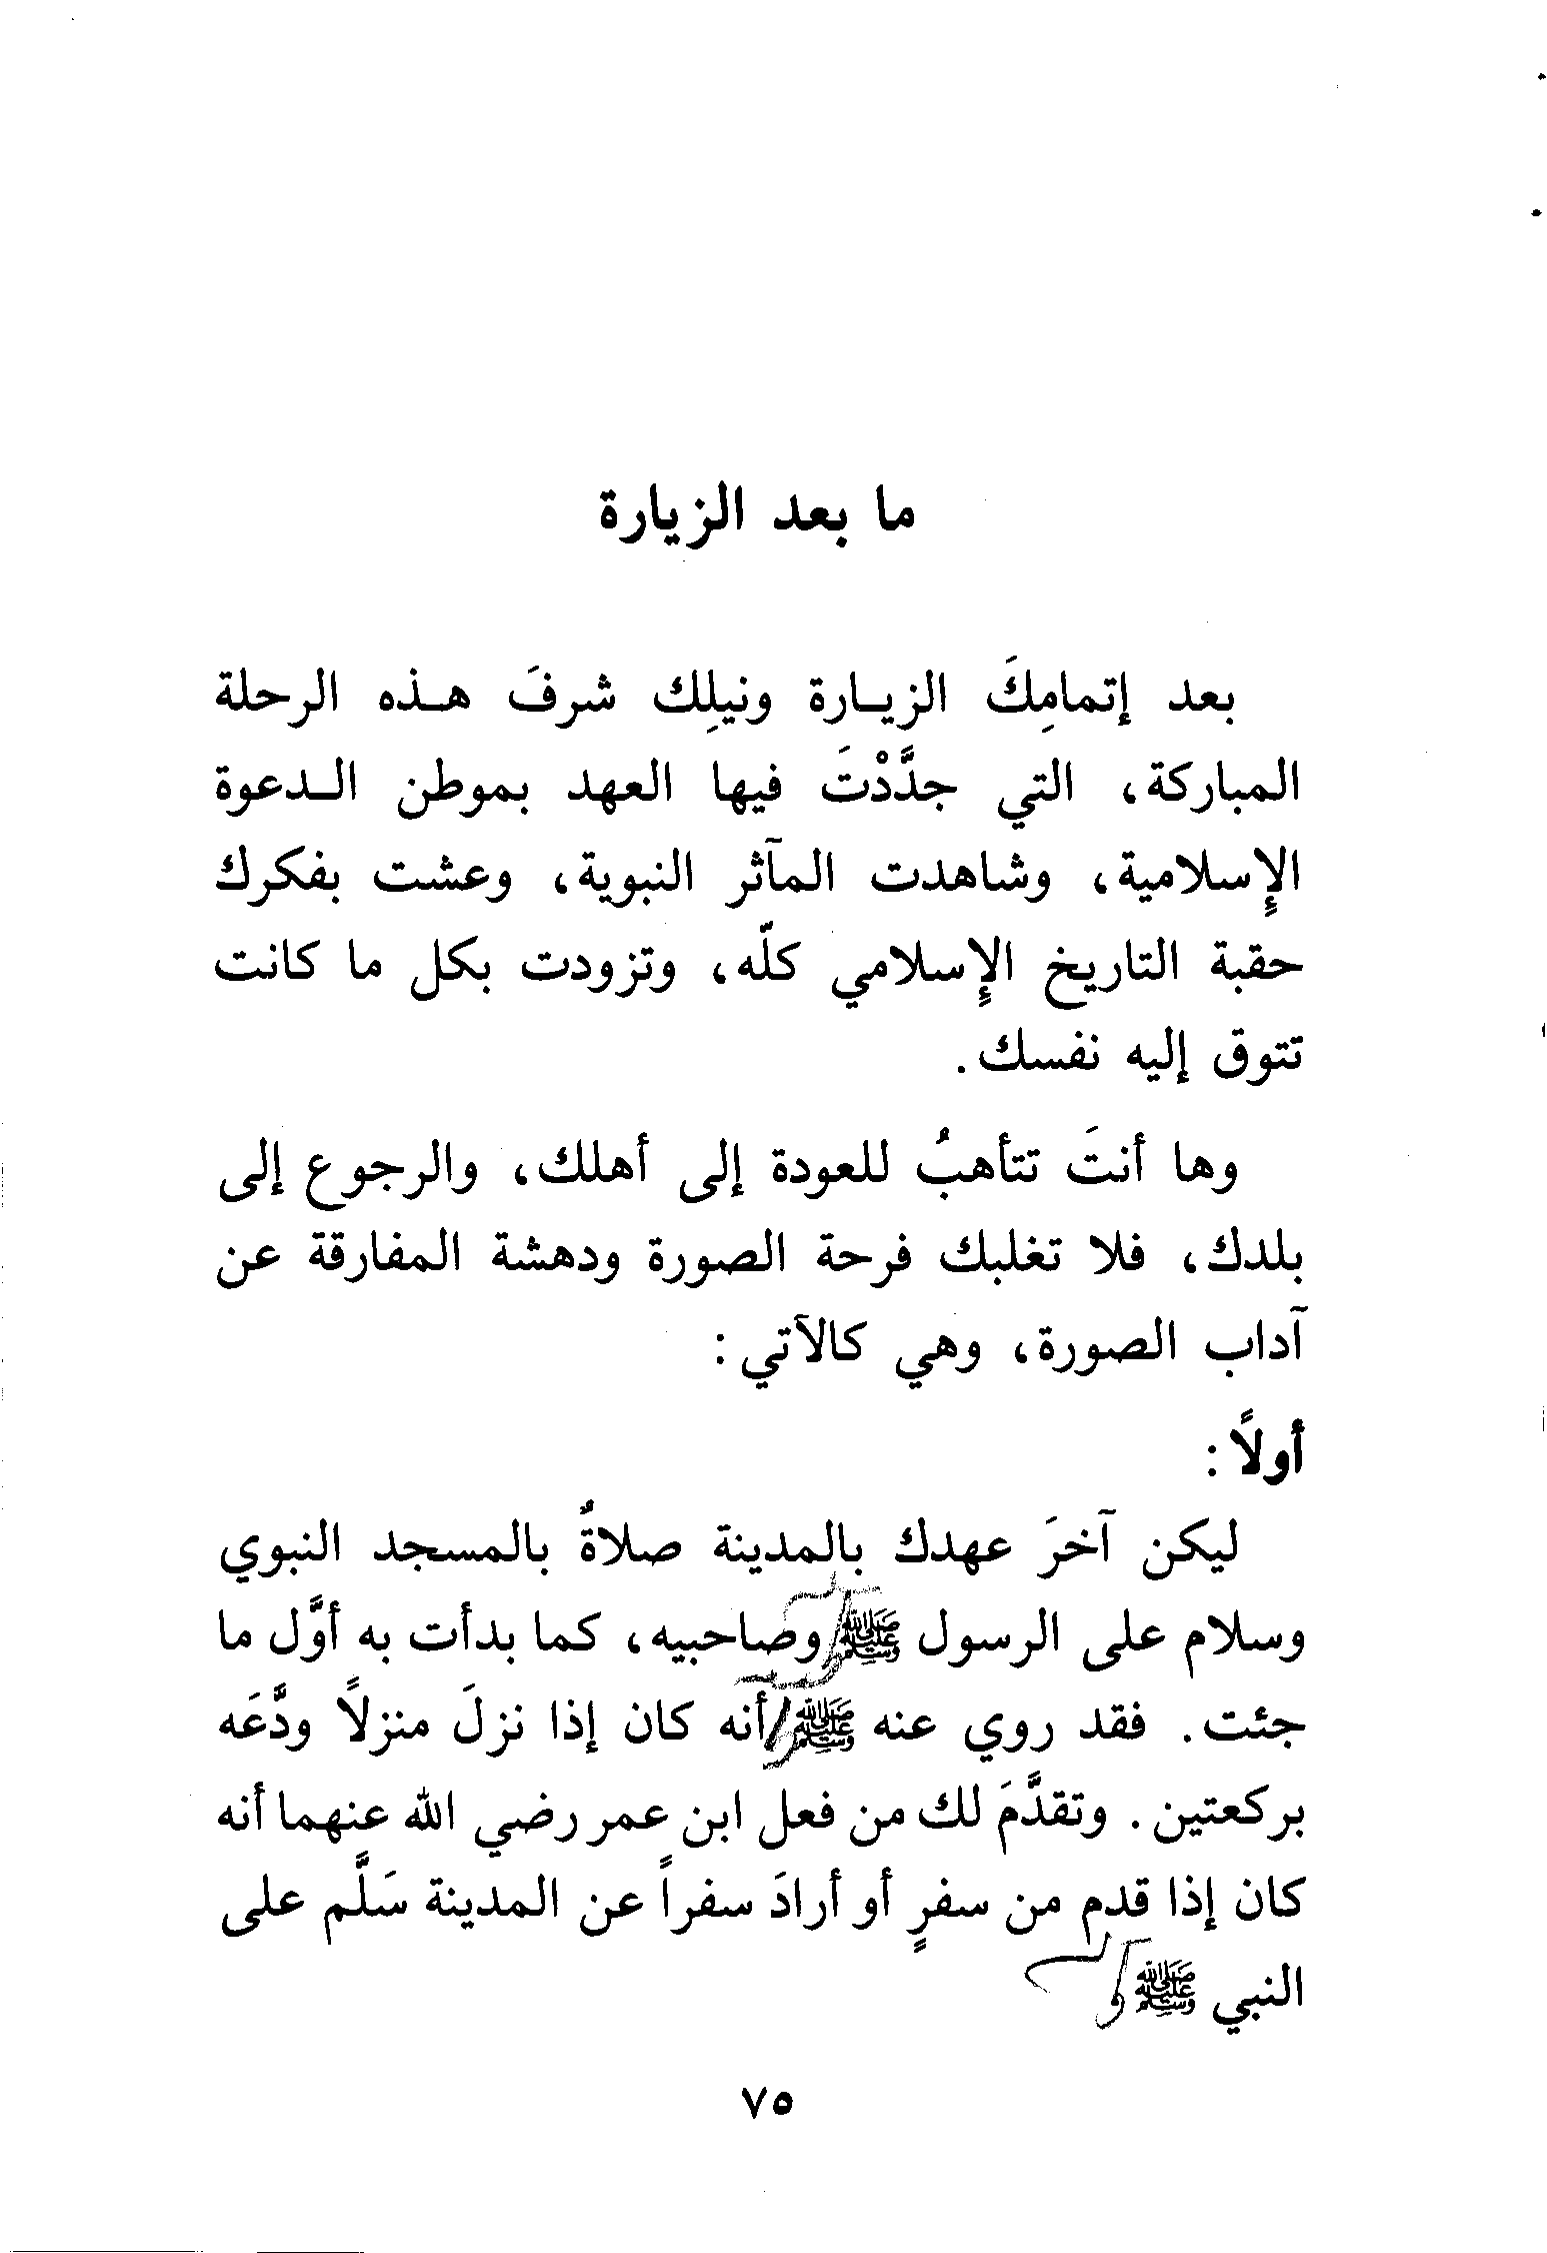 ما بعد الزيارة
بعد إتمامِكَ الزيـارة ونيلِك شرفَ هـذه الرحلة
المباركة، التي جدَّدْتَ فيها العهد بموطن الـدعوة
الإسلامية، وشاهدت المآثر النبوية، وعشت بفكرك
حقبة التاريخ الإسلامي كلّه، وتزودت بكل ما كانت
تتوق إليه نفسك.
وها أنتَ تتأهبُ للعودة إلى أهلك، والرجوع إلى
بلدك، فلا تغلبك فرحة الصورة ودهشة المفارقة عن
آداب الصورة، وهي كالآتي:
أولاً:
ليكن آخرَ عهدك بالمدينة صلاةٌ بالمسجد النبوي
وسلام على الرسول ﷺ وصاحبيه، كما بدأت به أوَّل ما
جئت. فقد روي عنه ﷺ أنه كان إذا نزلَ منزلاً ودَّعَه
بركعتين. وتقدَّمَ لك من فعل ابن عمر رضي الله عنهما أنه
كان إذا قدم من سفرٍ أو أرادَ سفراً عن المدينة سَلَّم على
النبي ﷺ
٧٥